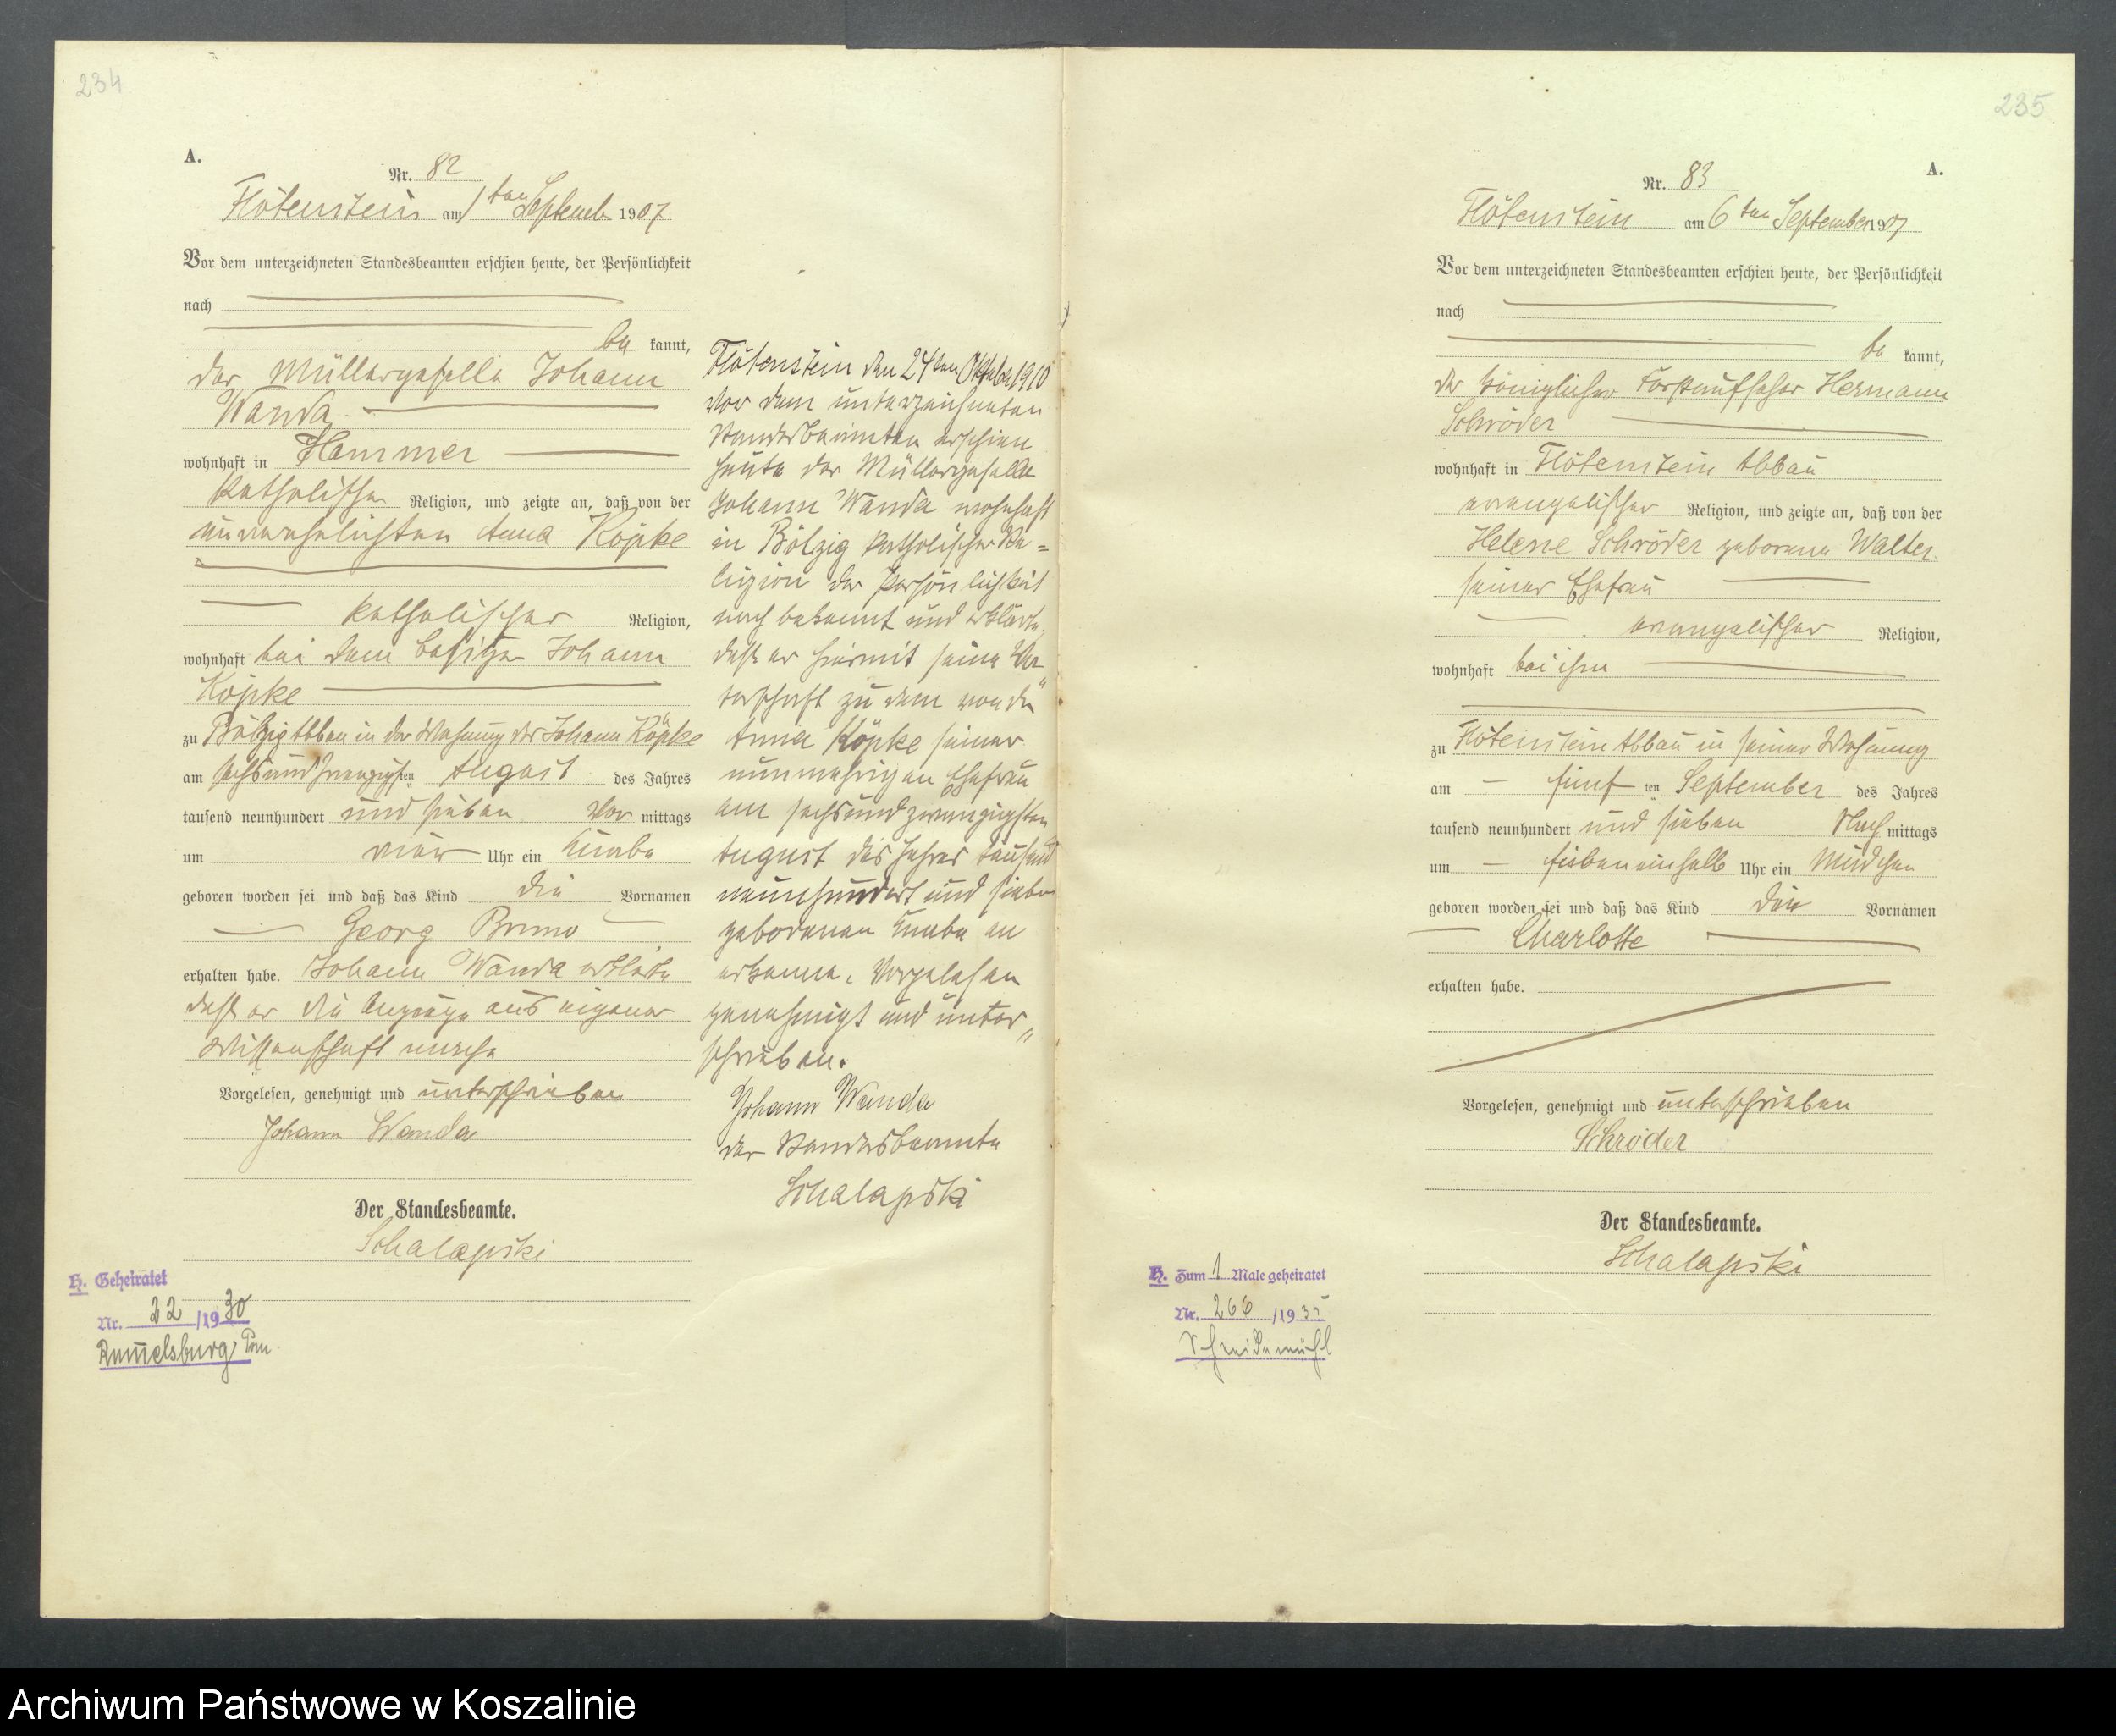 234
A.
Nr. 82
Flötenstein am 1ten Septemb 1907
Vor dem unterzeichneten Standesbeamten erschien heute, der Persönlichkeit
nach
be kannt,
der Müllergeselle Johann
Wanda
wohnhaft in Hammer
katholischer Religion, und zeigte an, daß von der
unverehelichten Anna Köpke
katholischer Religion,
wohnhaft bei dem Besitzer Johann
Köpke
zu Bölzig Abbau in der Wohnung des Johann Köpke
am sechsundzwanzigsten August des Jahres
tausend neunhundert und sieben Vor mittags
um vier Uhr ein Knabe
geboren worden sei und daß das Kind die Vornamen
Georg Bruno
erhalten habe. Johann Wanda erklärte
daß er die Anzeige aus eigener
Wissenschaft mache
Vorgelesen, genehmigt und unterschrieben
Johann Wanda
Der Standesbeamte.
Schalapski
H. Geheiratet
Nr. 22 /1930
Rummelsburg, Pom.
Flötenstein den 24ten Oktober 1910
Vor dem unterzeichneten
Standesbeamten erschien
heute der Müllergeselle
Johann Wanda wohnhaft
in Bölzig katholischer Re=
ligion der Persönlichkeit
nach bekannt und erklärte,
daß er hiermit seine Va
terschaft zu dem von der
Anna Köpke seiner
nunmehrigen Ehefrau
am sechsundzwanzigsten
August des Jahres tausend
neunhundert und sieben
geborenen Knabe an
erkenne. Vorgelesen
genehmigt und unter"
schrieben.
Johann Wanda
der Standesbeamte
Schalapski
235
A.
Nr. 83
Flötenstein am 6ten September 1907
Vor dem unterzeichneten Standesbeamten erschien heute, der Persönlichkeit
nach
be kannt,
der königlicher Forstaufseher Hermann
Schröder
wohnhaft in Flötenstein Abbau
evangelischer Religion, und zeigte an, daß von der
Helene Schröder geborene Walter
seiner Ehefrau
evangelischer Religion,
wohnhaft bei ihm
zu Flötenstein Abbau in seiner Wohnung
am fünf ten September des Jahres
tausend neunhundert und sieben Nach mittags
um siebeneinhalb Uhr ein Mädchen
geboren worden sei und daß das Kind die Vornamen
Charlotte
erhalten habe.
Vorgelesen, genehmigt und unterschrieben
Schröder
Der Standesbeamte.
Schalapski
H. Zum 1 Male geheiratet
Nr. 266 /1935
Schneidemühl
Archiwum Państwowe w Koszalinie